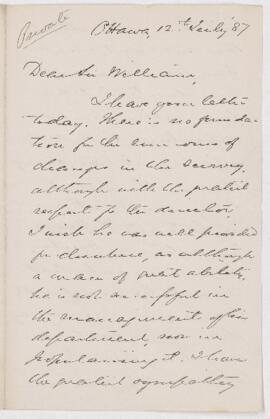 Private
Ottawa, 12th July '87
Dear Sir William,
I have your letter
today. There is no founda-
tion for the rumours of
changes in the Survey,
although with the greatest
respect to the director,
I wish he was well provided
for elsewhere, as although
a man of great ability
he is not successful in
the management of his
department, nor in
popularising it. I have
the greatest sympathy